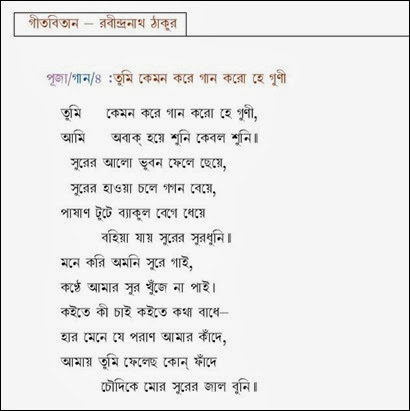 গীতবিতান – রবীন্দ্রনাথ ঠাকুর
পূজা/গান/৪ :তুমি কেমন করে গান করো হে গুণী
তুমি কেমন করে গান করো হে গুণী,
আমি অবাক্ হয়ে শুনি কেবল শুনি॥
সুরের আলো ভুবন ফেলে ছেয়ে,
সুরের হাওয়া চলে গগন বেয়ে,
পাষাণ টুটে ব্যাকুল বেগে ধেয়ে
বহিয়া যায় সুরের সুরধুনি॥
মনে করি অমনি সুরে গাই,
কণ্ঠে আমার সুর খুঁজে না পাই।
কইতে কী চাই কইতে কথা বাধে–
হার মেনে যে পরাণ আমার কাঁদে,
আমায় তুমি ফেলেছ কোন্ ফাঁদে
চৌদিকে মোর সুরের জাল বুনি॥